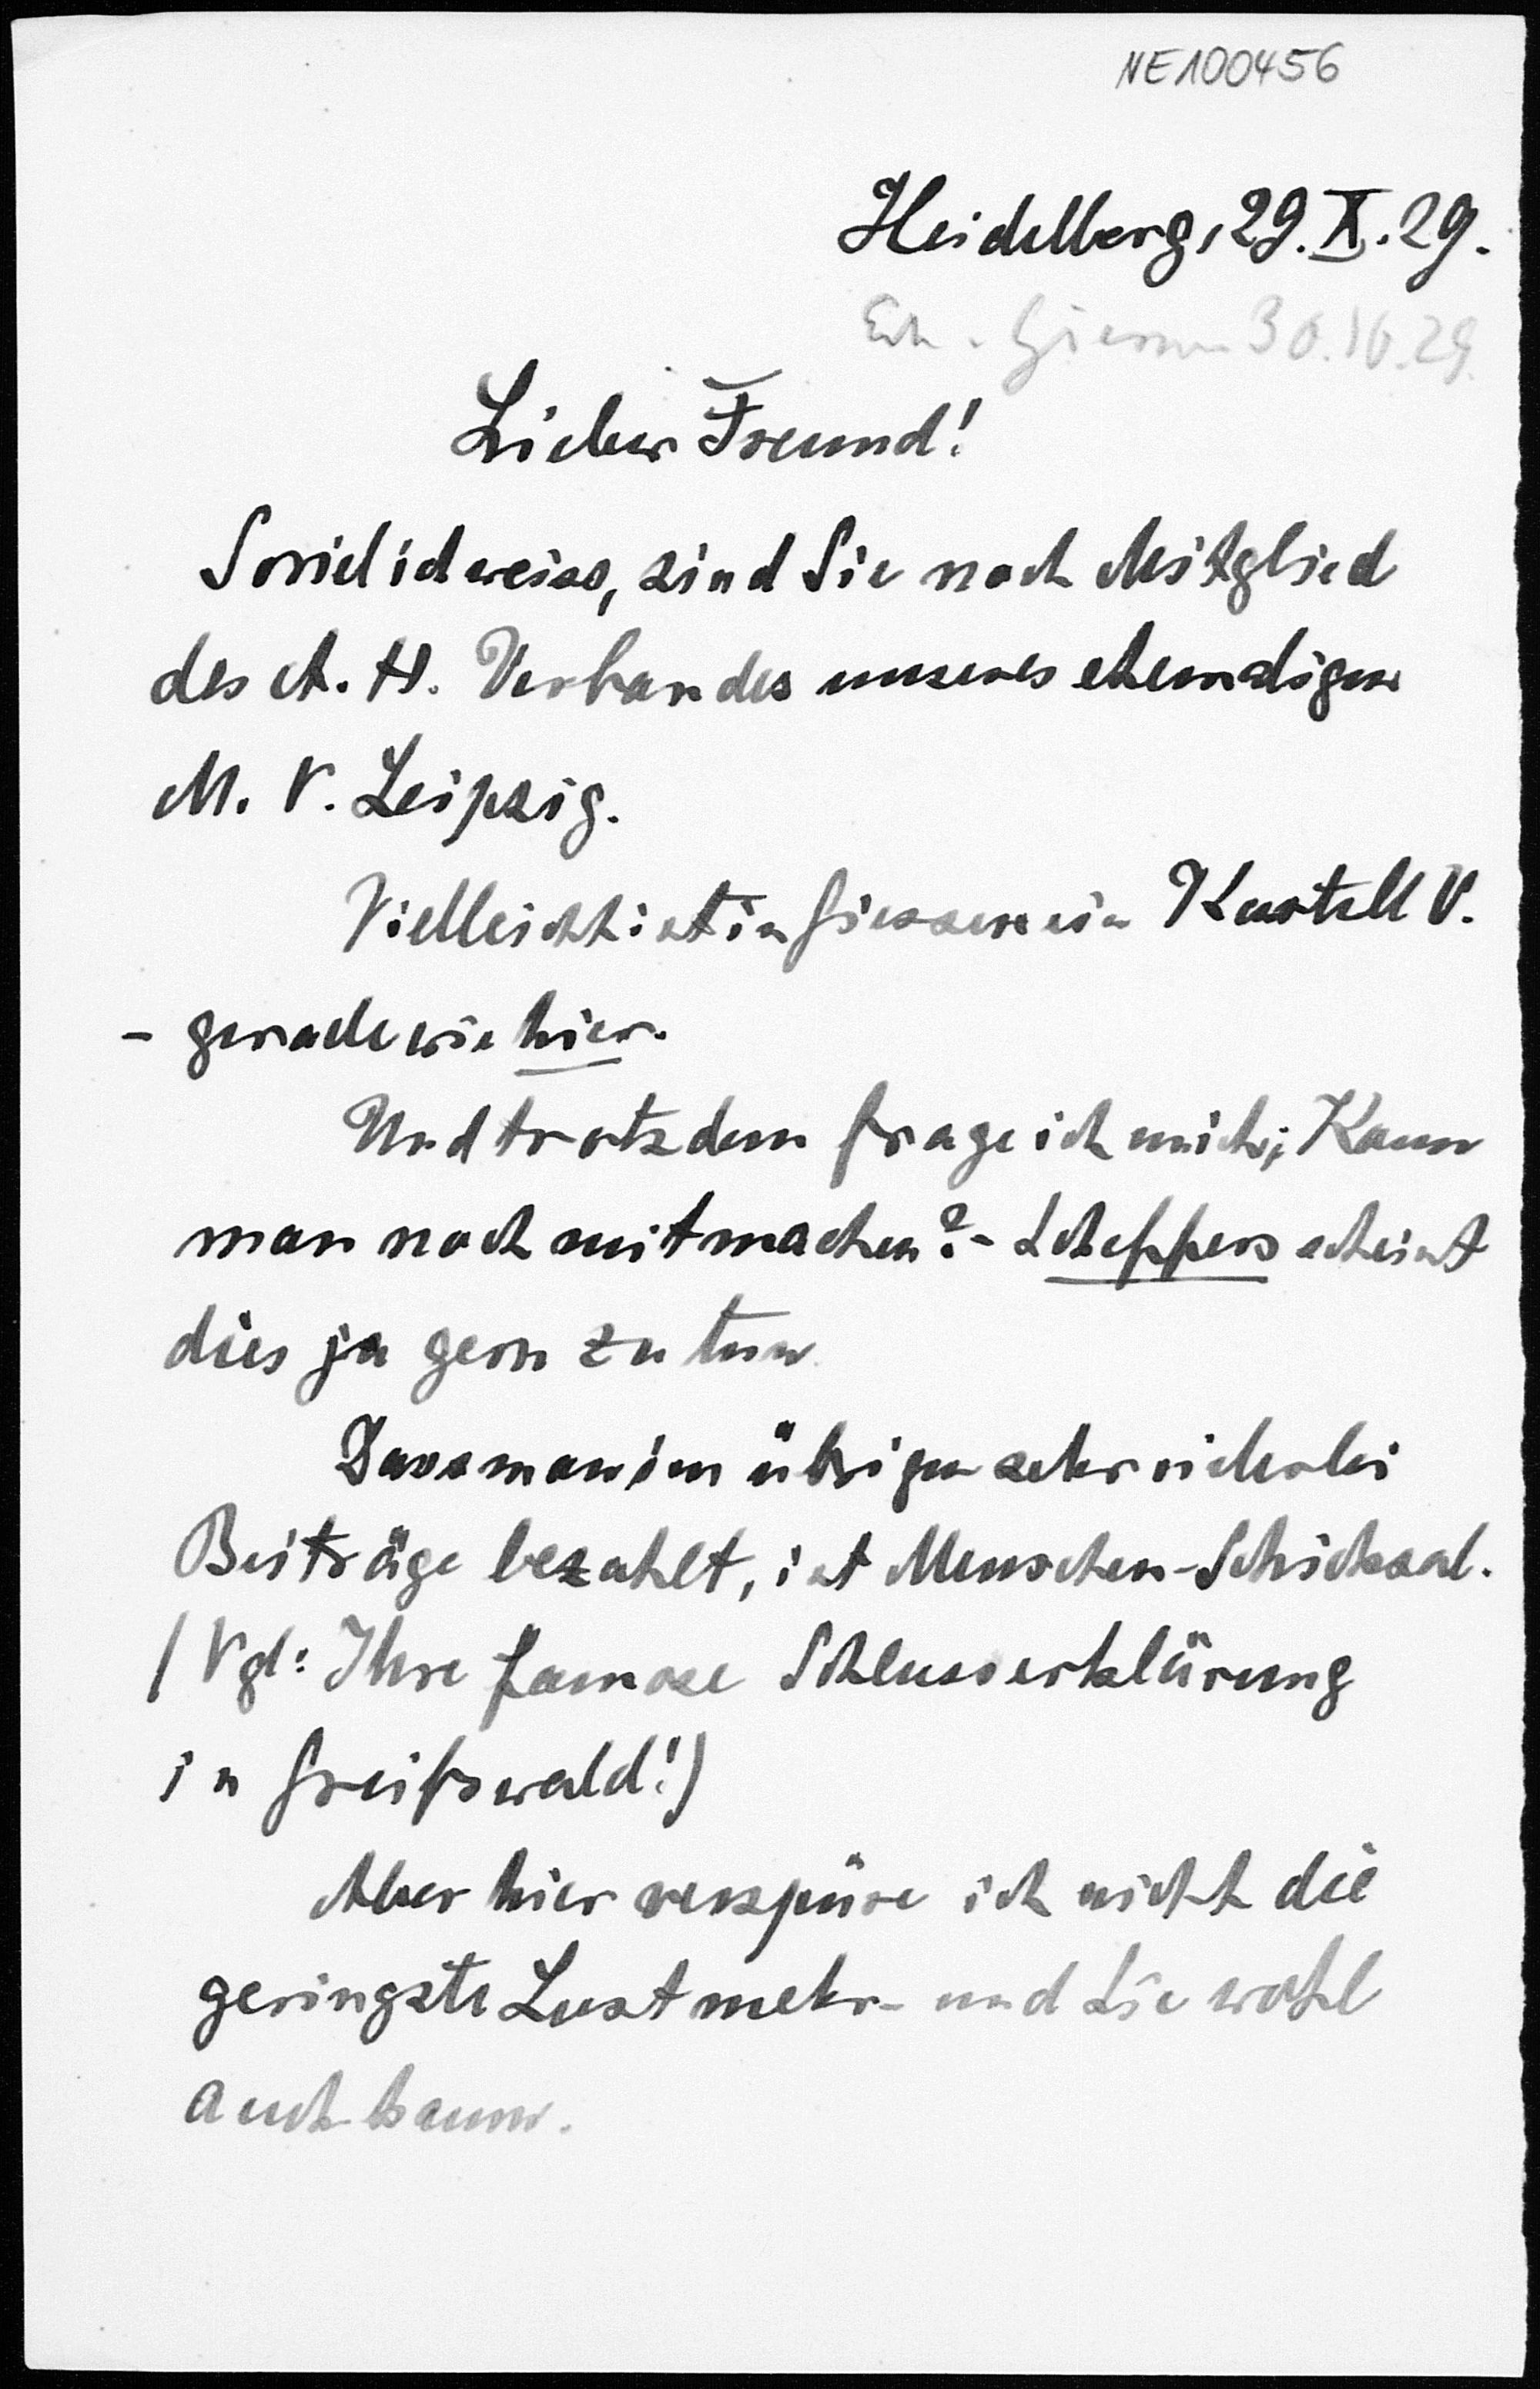 NE100456
Heidelberg, 29. X. 29.
Erh. Giessen 30.10.29.
Lieber Freund!
Soviel ich weiss, sind Sie noch Mitglied
des A. H. Verbandes unseres ehemaligen
M. V. Leipzig.
Vielleicht ist in Giessen ein Kartell V.
- gerade wie hier.
Und trotzdem frage ich mich; Kann
man noch mitmachen? - Scheppers scheint
dies ja gern zu tun.
Dass man im übrigen sehr vielerlei
Beiträge bezahlt, ist Menschen-Schicksal.
(Vgl: Ihre famose Schlusserklärung
in Greifswald!)
Aber hier verspüre ich nicht die
geringste Lust mehr - und Sie wohl
auch kaum.